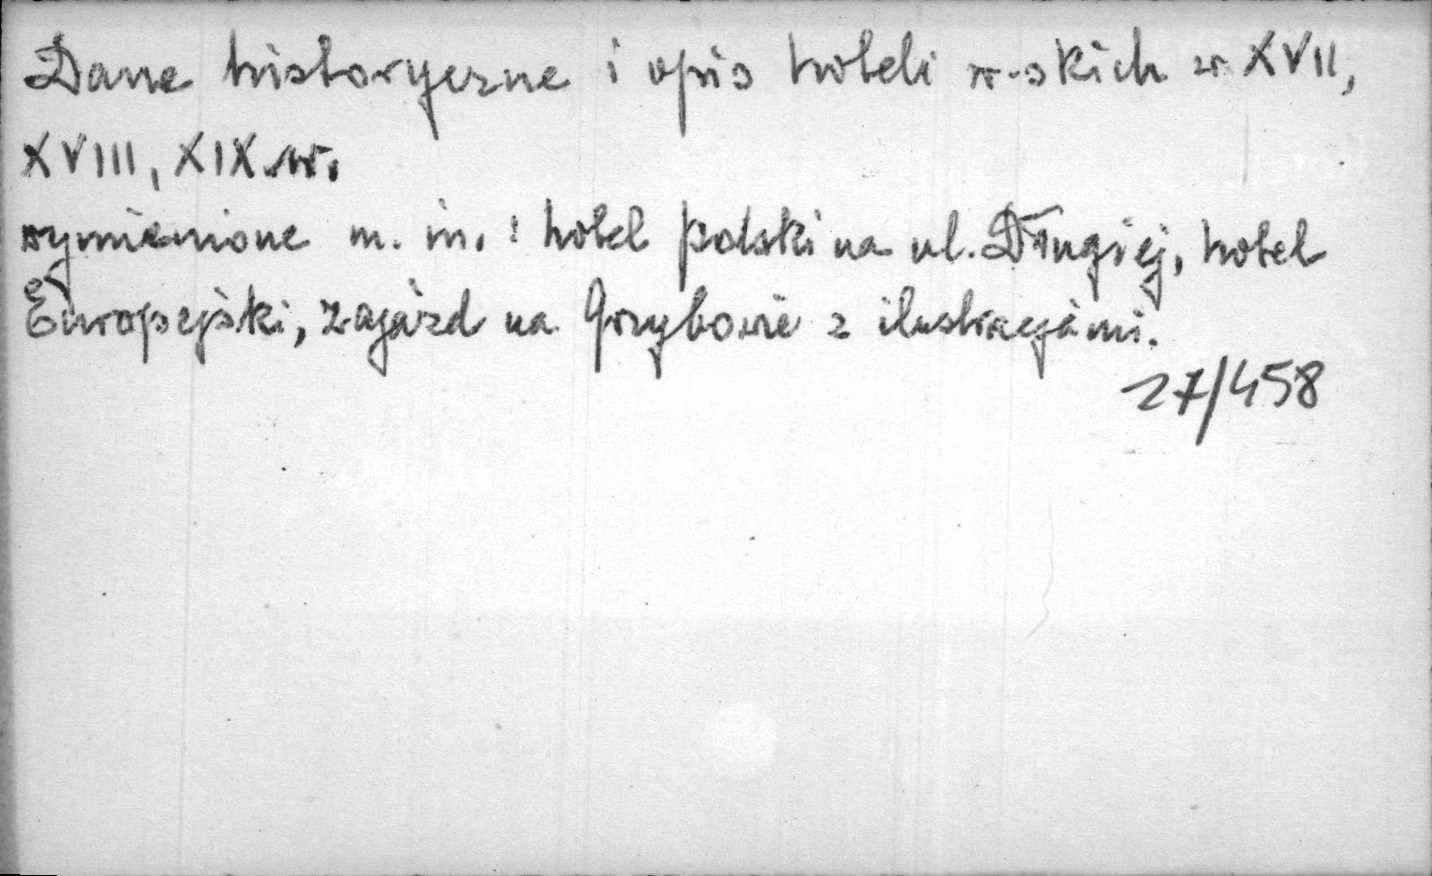 Dane historyczne i opis hoteli w-skich w XVII,
XVIII, XIX w.
wymienione m. in. : hotel polski na ul. Długiej, hotel
Europejski, zajazd na Grzybowie z ilustracjami.
27/458